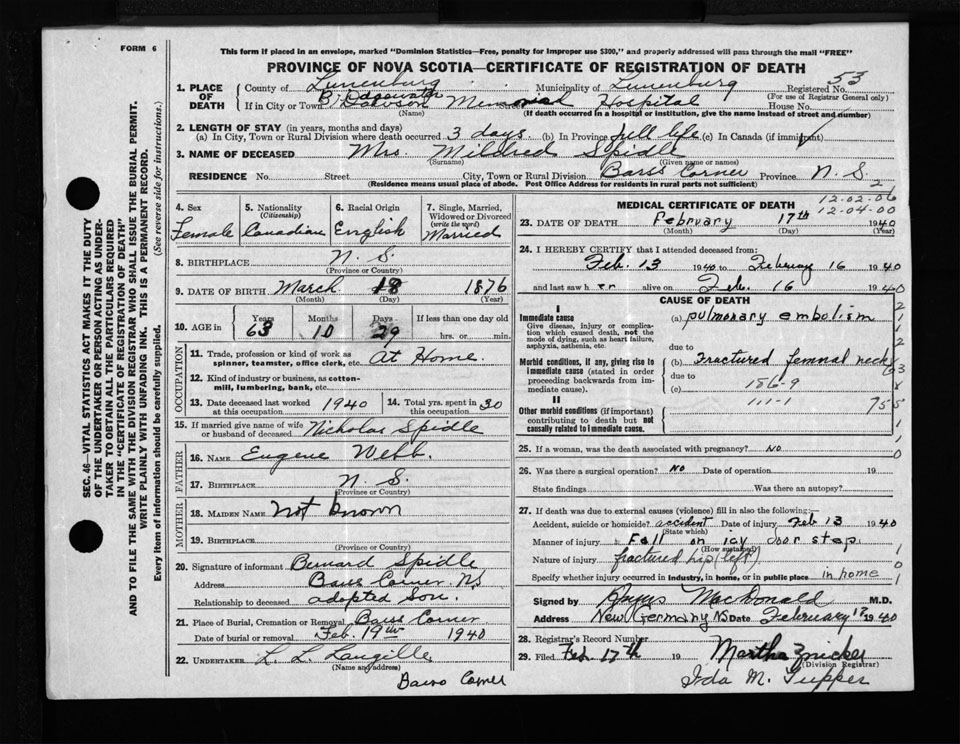 FORM 6
This form if placed in an envelope, marked "Dominion Statistics—Free, penalty for improper use $300," and properly addressed will pass through the mail "FREE"
PROVINCE OF NOVA SCOTIA—CERTIFICATE OF REGISTRATION OF DEATH
1. PLACE OF DEATH
County of Lunenburg Municipality of Lunenburg Registered No. 53
(For use of Registrar General only)
If in City or Town Bridgewater Dawson Memorial Hospital House No.
(Name) (If death occurred in a hospital or institution, give the name instead of street and number)
2. LENGTH OF STAY (in years, months and days)
(a) In City, Town or Rural Division where death occurred 3 days (b) In Province full life (c) In Canada (if immigrant)
3. NAME OF DECEASED Mrs Mildred Spidle
(Surname) (Given name or names)
RESIDENCE No. Street City, Town or Rural Division Barss Corner Province N. S.
(Residence means usual place of abode. Post Office Address for residents in rural parts not sufficient)
4. Sex Female
5. Nationality (Citizenship) Canadian
6. Racial Origin English
7. Single, Married, Widowed or Divorced (write the word) Married
8. BIRTHPLACE N. S.
(Province or County)
9. DATE OF BIRTH March 18 1876
(Month) (Day) (Year)
10. AGE in Years 63 Months 10 Days 29 If less than one day old hrs. or min.
OCCUPATION
11. Trade, profession or kind of work as spinner, teamster, office clerk, etc. At Home.
12. Kind of industry or business, as cotton-mill, lumbering, bank, etc.
13. Date deceased last worked at this occupation 1940
14. Total yrs. spent in this occupation 30
15. If married give name of wife or husband of deceased Nicholas Spidle
FATHER
16. NAME Eugene Webb.
17. BIRTHPLACE N. S.
(Province or Country)
MOTHER
18. MAIDEN NAME Not known
19. BIRTHPLACE
(Province or Country)
20. Signature of informant Bernard Spidle
Address Barss Corner, NS
Relationship to deceased adopted son.
21. Place of Burial, Cremation or Removal Barss Corner
Date of burial or removal Feb. 19th 1940
22. UNDERTAKER L. L. Langille
(Name and address)
Barss Corner
MEDICAL CERTIFICATE OF DEATH
12-02-06 2
12-04-00
23. DATE OF DEATH February 17th 1940
(Month) (Day) (Year)
24. I HEREBY CERTIFY that I attended deceased from:
Feb. 13 1940 to February 16 1940
and last saw her alive on Feb. 16 1940
CAUSE OF DEATH
I
Immediate cause
Give disease, injury or complication which caused death, not the mode of dying, such as heart failure, asphyxia, asthenia, etc.
(a) pulmonary embolism
due to
Morbid conditions, if any, giving rise to immediate cause (stated in order proceeding backwards from immediate cause).
(b) Fractured femoral neck
due to
(c) 186-9
111-1
II
Other morbid conditions (if important) contributing to death but not causally related to immediate cause.
25. If a woman, was the death associated with pregnancy? NO
26. Was there a surgical operation? NO Date of operation 19
State findings Was there an autopsy?
27. If death was due to external causes (violence) fill in also the following:—
Accident, suicide or homicide? accident Date of injury Feb 13 1940
(State which)
Manner of injury Fell on icy door step.
(How sustained)
Nature of injury fractured hip (left)
Specify whether injury occurred in industry, in home, or in public place in home
Signed by MacDonald M.D.
Address New Germany NS Date February 17 1940
28. Registrar's Record Number
29. Filed Feb 17th 19 Martha Zwicker
(Division Registrar)
Ida M. Tupper
SEC. 46—VITAL STATISTICS ACT MAKES IT THE DUTY
OF THE UNDERTAKER OR PERSON ACTING AS UNDER-
TAKER TO OBTAIN ALL THE PARTICULARS REQUIRED
IN THE "CERTIFICATE OF REGISTRATION OF DEATH"
AND TO FILE THE SAME WITH THE DIVISION REGISTRAR WHO SHALL ISSUE THE BURIAL PERMIT.
WRITE PLAINLY WITH UNFADING INK. THIS IS A PERMANENT RECORD.
Every item of information should be carefully supplied. (See reverse side for instructions.)